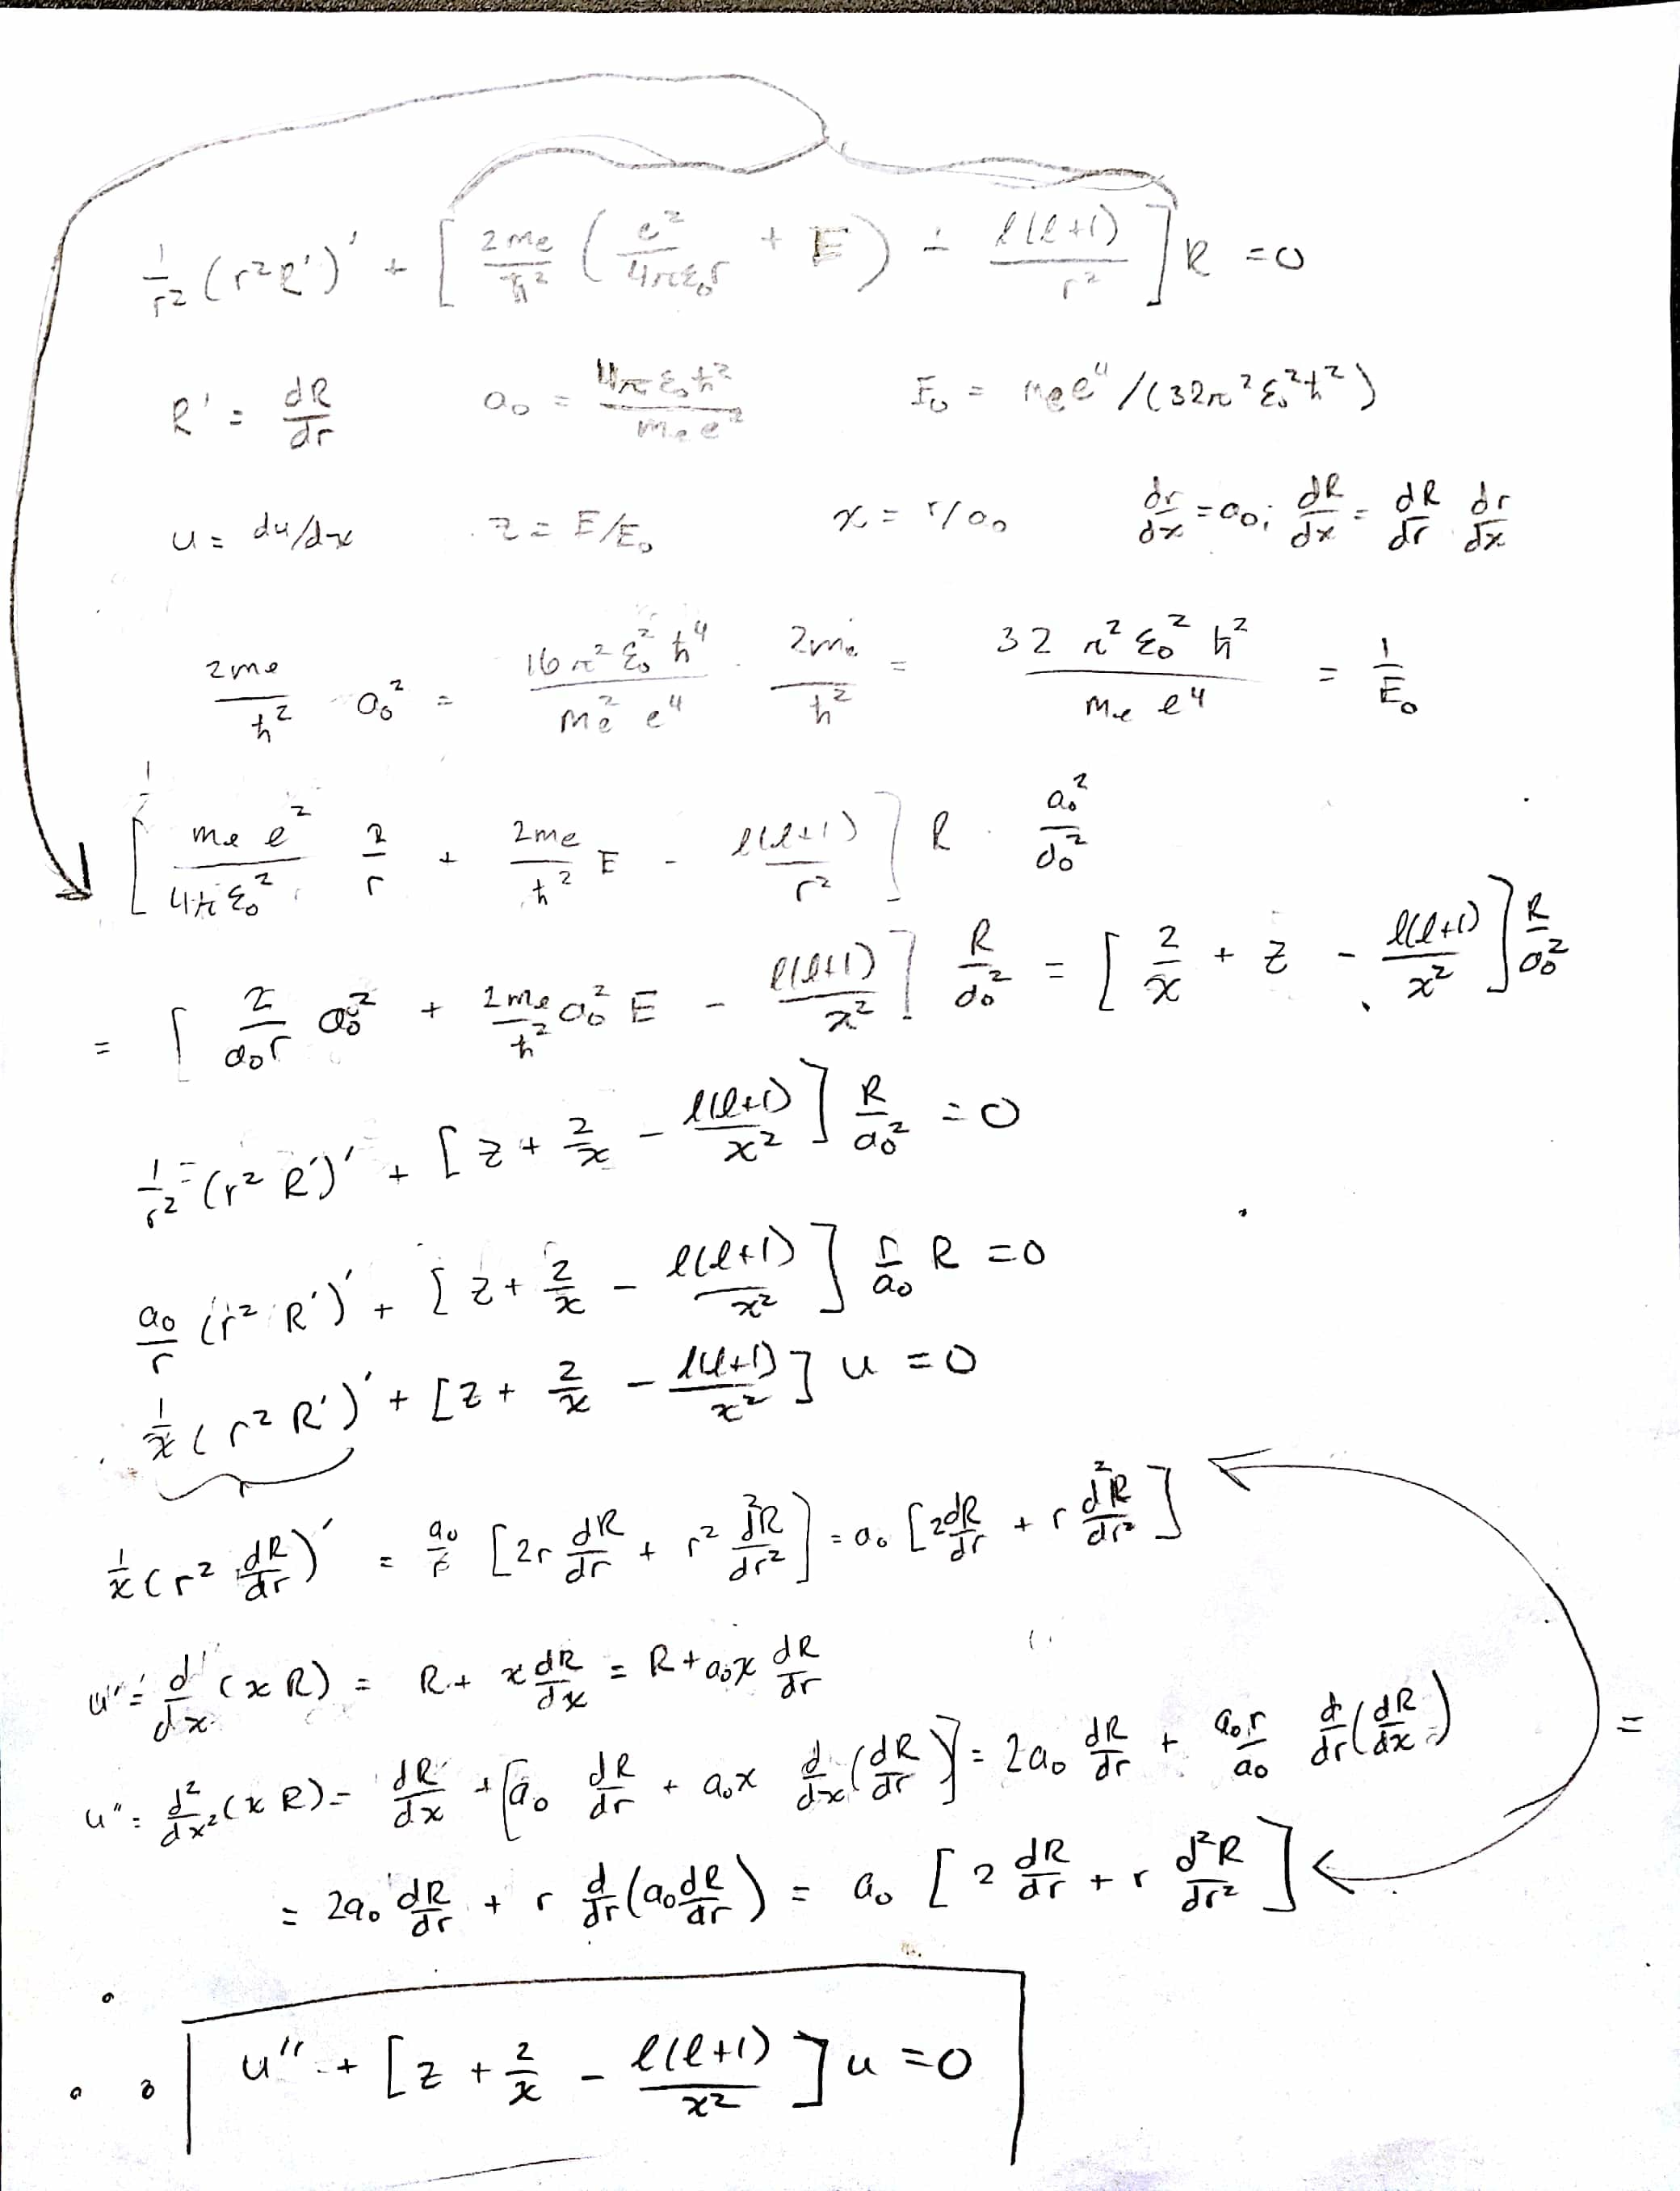 1/r² (r²R')' + [ 2me/ħ² ( e²/4πε₀r + E ) - l(l+1)/r² ] R = 0
R' = dR/dr   a₀ = 4πε₀ħ²/mₑe²   E₀ = mₑe⁴/(32π²ε₀²ħ²)
u = du/dx   z = E/E₀   x = r/a₀   dr/dx = a₀; dR/dx = dR/dr dr/dx
2me/ħ² · a₀² = 16π²ε₀²ħ⁴/me²e⁴ · 2me/ħ² = 32π²ε₀²ħ²/me e⁴ = 1/E₀
[ me e²/4πε₀² 2/r + 2me/ħ² E - l(l+1)/r² ] R · a₀²/a₀²
= [ 2/a₀r a₀² + 2me/ħ² a₀² E - l(l+1)/x² ] R/a₀² = [ 2/x + z - l(l+1)/x² ] R/a₀²
1/r² (r² R')' + [ z + 2/x - l(l+1)/x² ] R/a₀² = 0
a₀/r (r² R')' + [ z + 2/x - l(l+1)/x² ] r/a₀ R = 0
1/x (r² R')' + [ z + 2/x - l(l+1)/x² ] u = 0
1/x (r² dR/dr)' = a₀/r [ 2r dR/dr + r² d²R/dr² ] = a₀ [ 2dR/dr + r d²R/dr² ]
u' = d/dx (x R) = R + x dR/dx = R + a₀x dR/dr
u'' = d²/dx² (x R) = dR/dx + [ a₀ dR/dr + a₀x d/dx (dR/dr) ] = 2a₀ dR/dr + a₀r/a₀ d/dr (dR/dx) =
= 2a₀ dR/dr + r d/dr (a₀ dR/dr) = a₀ [ 2 dR/dr + r d²R/dr² ]
∴ u'' + [ z + 2/x - l(l+1)/x² ] u = 0